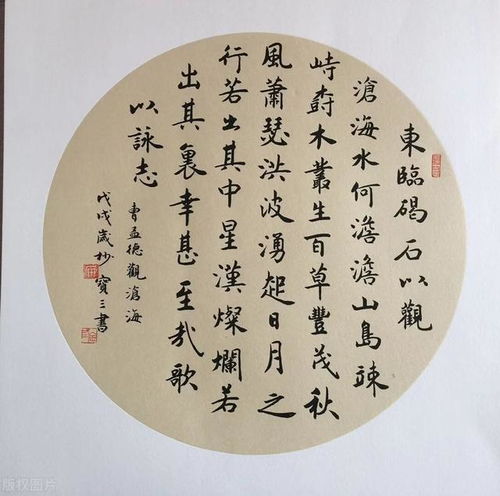 東臨碣石以觀
滄海水何澹澹山島竦
峙尌木叢生百草豐茂秋
風蕭瑟洪波湧起日月之
行若出其中星漢燦爛若
出其裏幸甚至哉歌
以詠志
曹孟德觀滄海
戊戌歲杪寶三書
版权图片